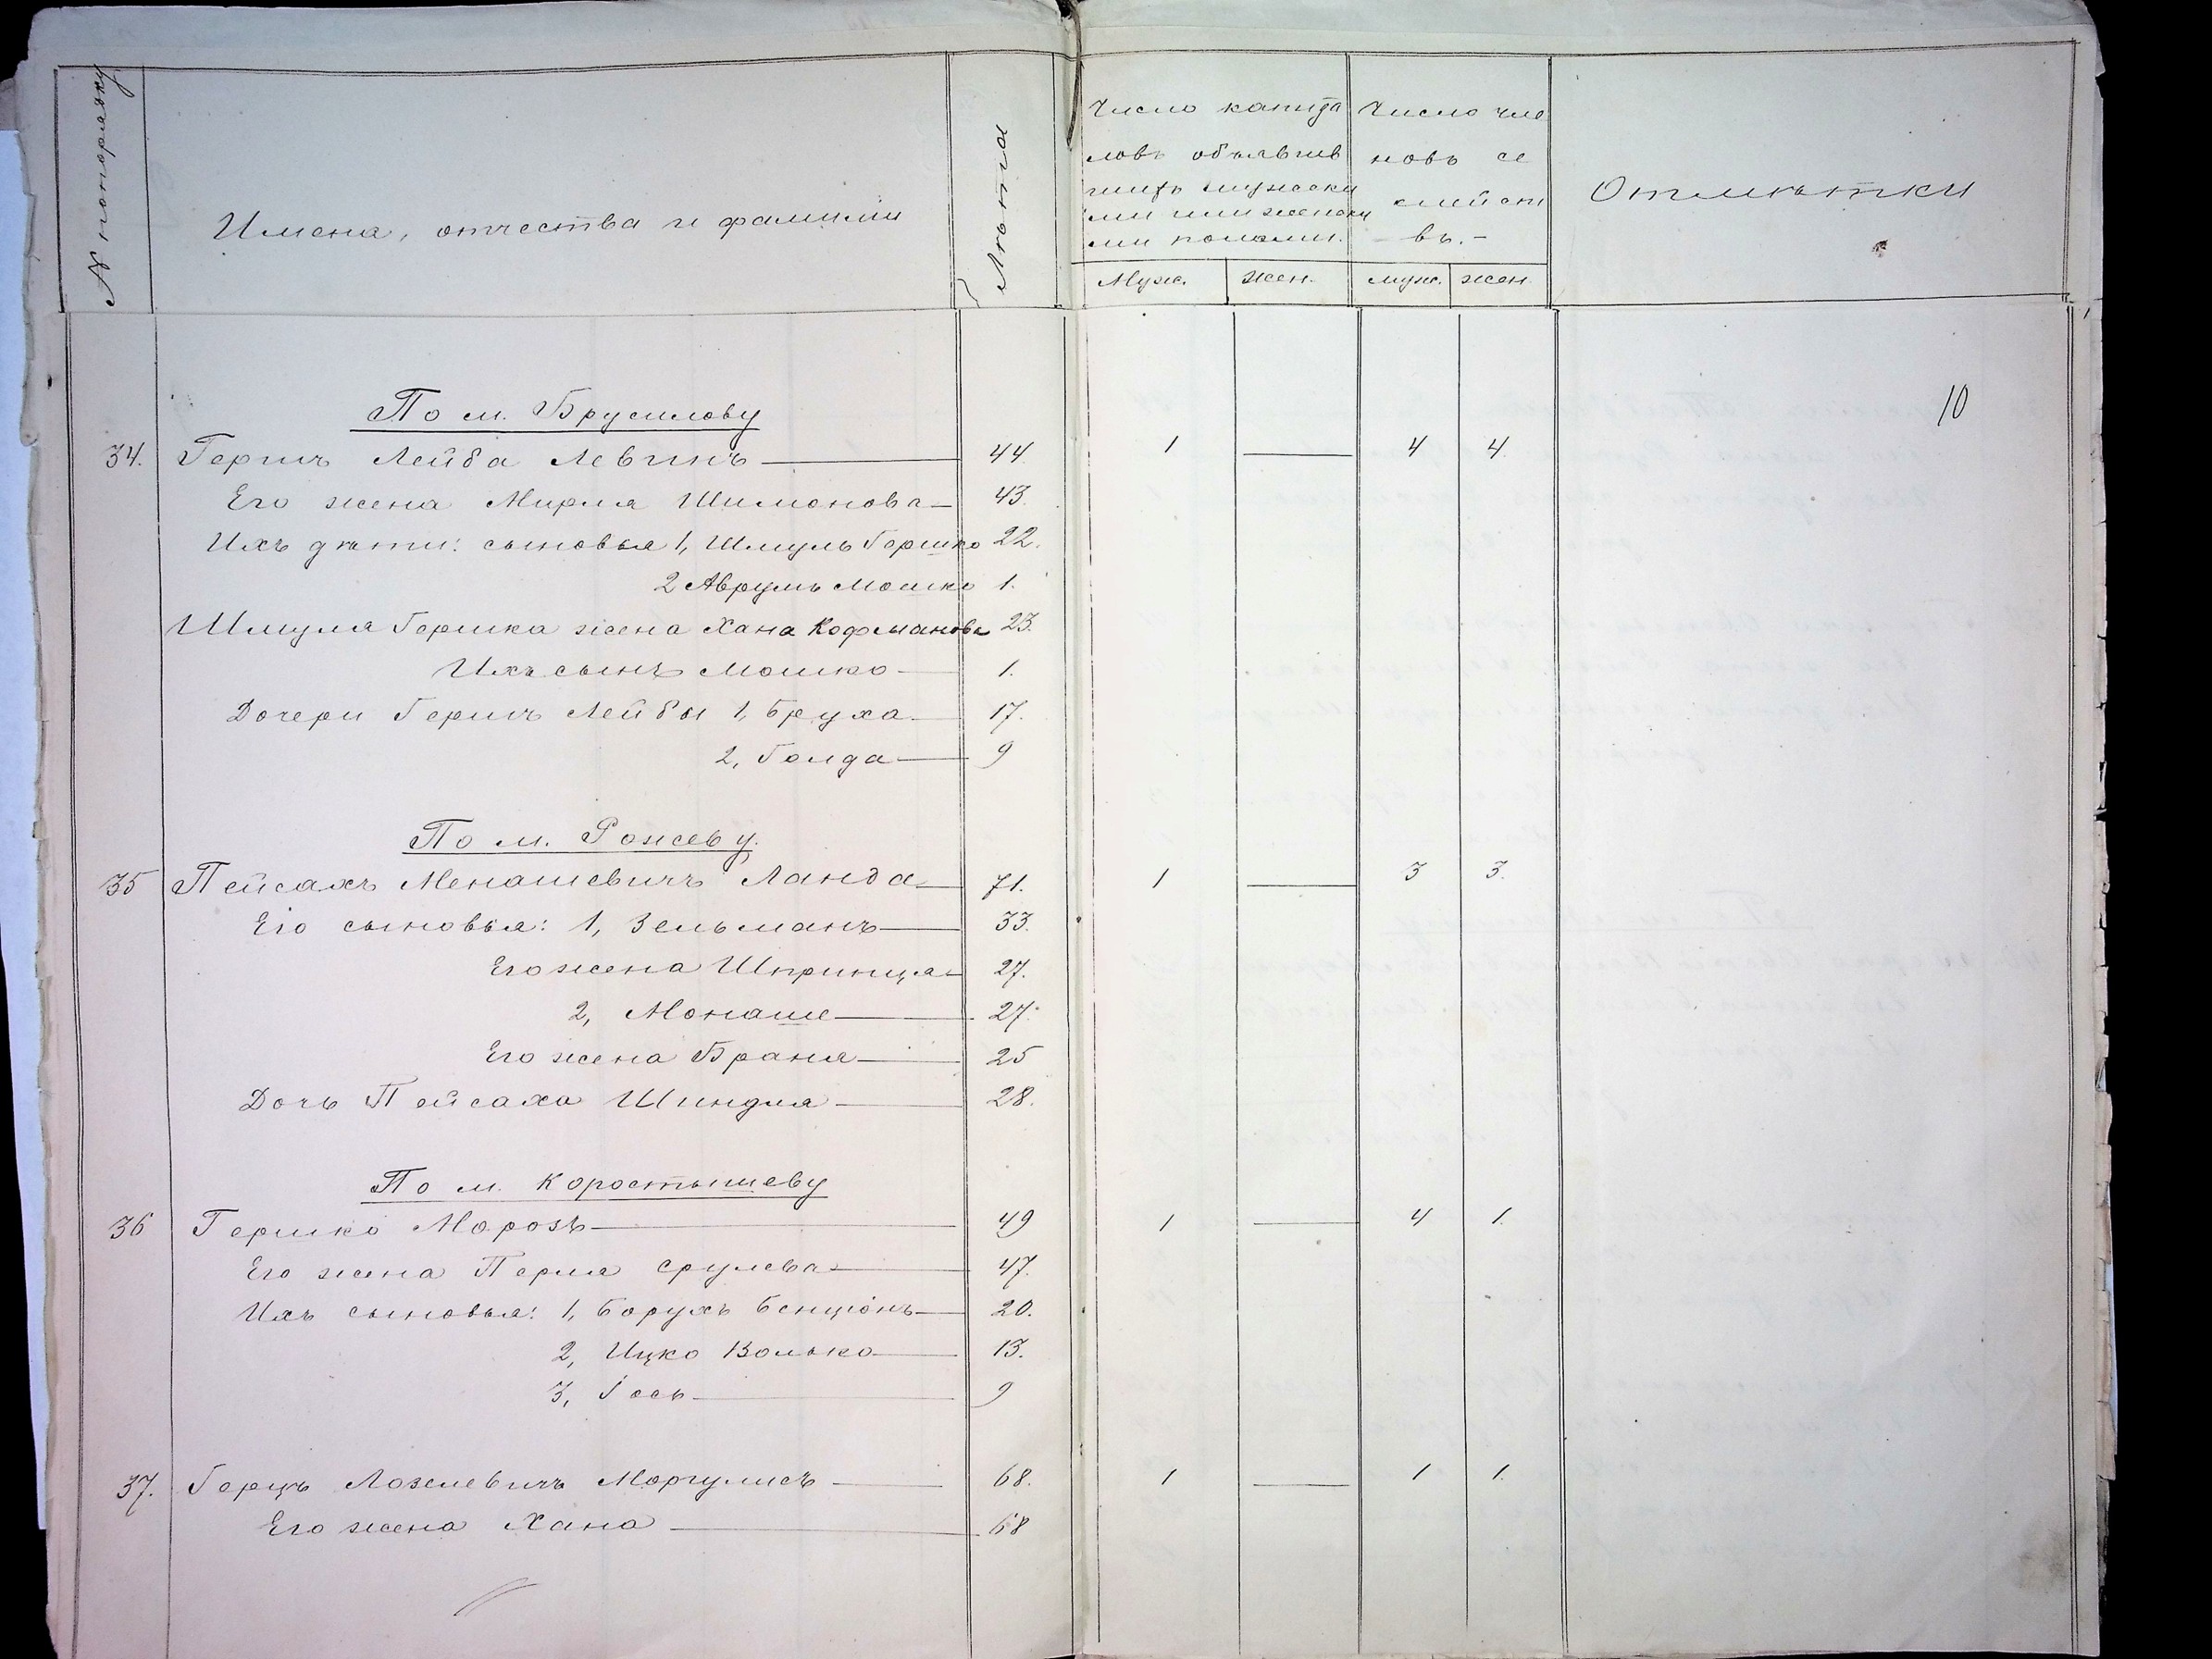 № по порядку
Имена, отчества и фамиліи
Лѣта
Число капита
ловъ объявив
шихъ мужски
ми или женски
ми полами.
Число чле
новъ се
мейст
въ.-
Отмѣтки
Муж. Жен. муж. жен.
10
По м. Брусилову
34. Гершъ Лейба Левинъ 44 1 — 4 4.
Его жена Мирля Шимонова 43.
Ихъ дѣти: сыновья 1, Шмуль Гершко 22.
2 Аврумъ Мошко 1.
Шмуля Гершка жена Хана Кофманова 23.
Ихъ сынъ Мошко 1.
Дочери Гершъ Лейбы 1, Бруха 17.
2, Голда 9
По м. Рожеву.
35 Пейсахъ Менашевичъ Ланда 71. 1 — 3 3.
Его сыновья: 1, Зельманъ 33.
Его жена Шпринца 27.
2, Монаше 27.
Его жена Браня 25
Дочь Пейсаха Шиндля 28.
По м. Коростышеву
36 Гершко Морозъ 49 1 — 4 1.
Его жена Перля Срулева 47.
Ихъ сыновья: 1, Борухъ Бенціонъ 20.
2, Ицко Волько 13.
3, Іось 9
37. Герцъ Лозелевичъ Моргулисъ 68. 1 — 1 1.
Его жена Хана 68